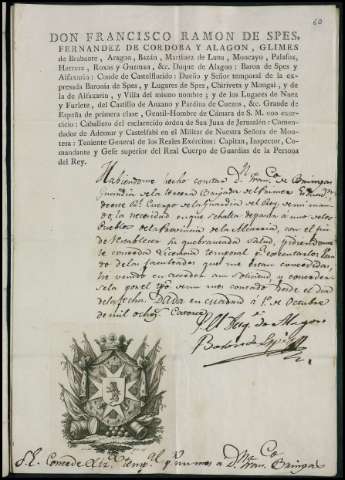 60
DON FRANCISCO RAMON DE SPES,
FERNANDEZ DE CORDOBA Y ALAGON, GLIMES
de Brabante, Aragon, Bazán, Martinez de Luna, Moncayo, Palafox,
Herrera, Roxas y Guzman, &c. Duque de Alagon: Baron de Spes y
Alfaxarin: Conde de Castelflorido: Dueño y Señor temporal de la ex-
presada Baronía de Spes, y Lugares de Spes, Chiriveta y Mongai, y de
la de Alfaxarin, y Villa del mismo nombre; y de los Lugares de Nuez
y Farlete, del Castillo de y Pardina de Cuenca, &c. Grande de
España de primera clase, Gentil-Hombre de Cámara de S. M. con exer-
cicio: Caballero del esclarecido órden de San Juan de Jerusalén: Comen-
dador de Ademuz y Castelfabi en el Militar de Nuestra Señora de Mon-
tesa: Teniente General de los Reales Exércitos: Capitan, Inspector, Co-
mandante y Gefe superior del Real Cuerpo de Guardias de la Persona
del Rey.
Habiendome hecho constar Dn. Franco. de
Guardia de la Brigada del Primer
del Rl. Cuerpo de Guardias del Rey de mi man-
do, la necesidad en que se halla de pasar a uno de los
Pueblos de la Provincia de la Mancha, con el fin
de restablecer su quebrantada salud, pidiendome
se conceda licencia temporal
de las facultades que me estan concedidas,
he venido en acceder a su solicitud, y conceder-
sela por el tpo. de un mes contado desde el dia
de la fecha. Dada en Madrid a 1º. de Octubre
de mil ochocs. Catorce.
El Duq. de Alagon
Baron de Espés
S. E. Concede Liza. templ. pr. un mes a Dn. Franco.